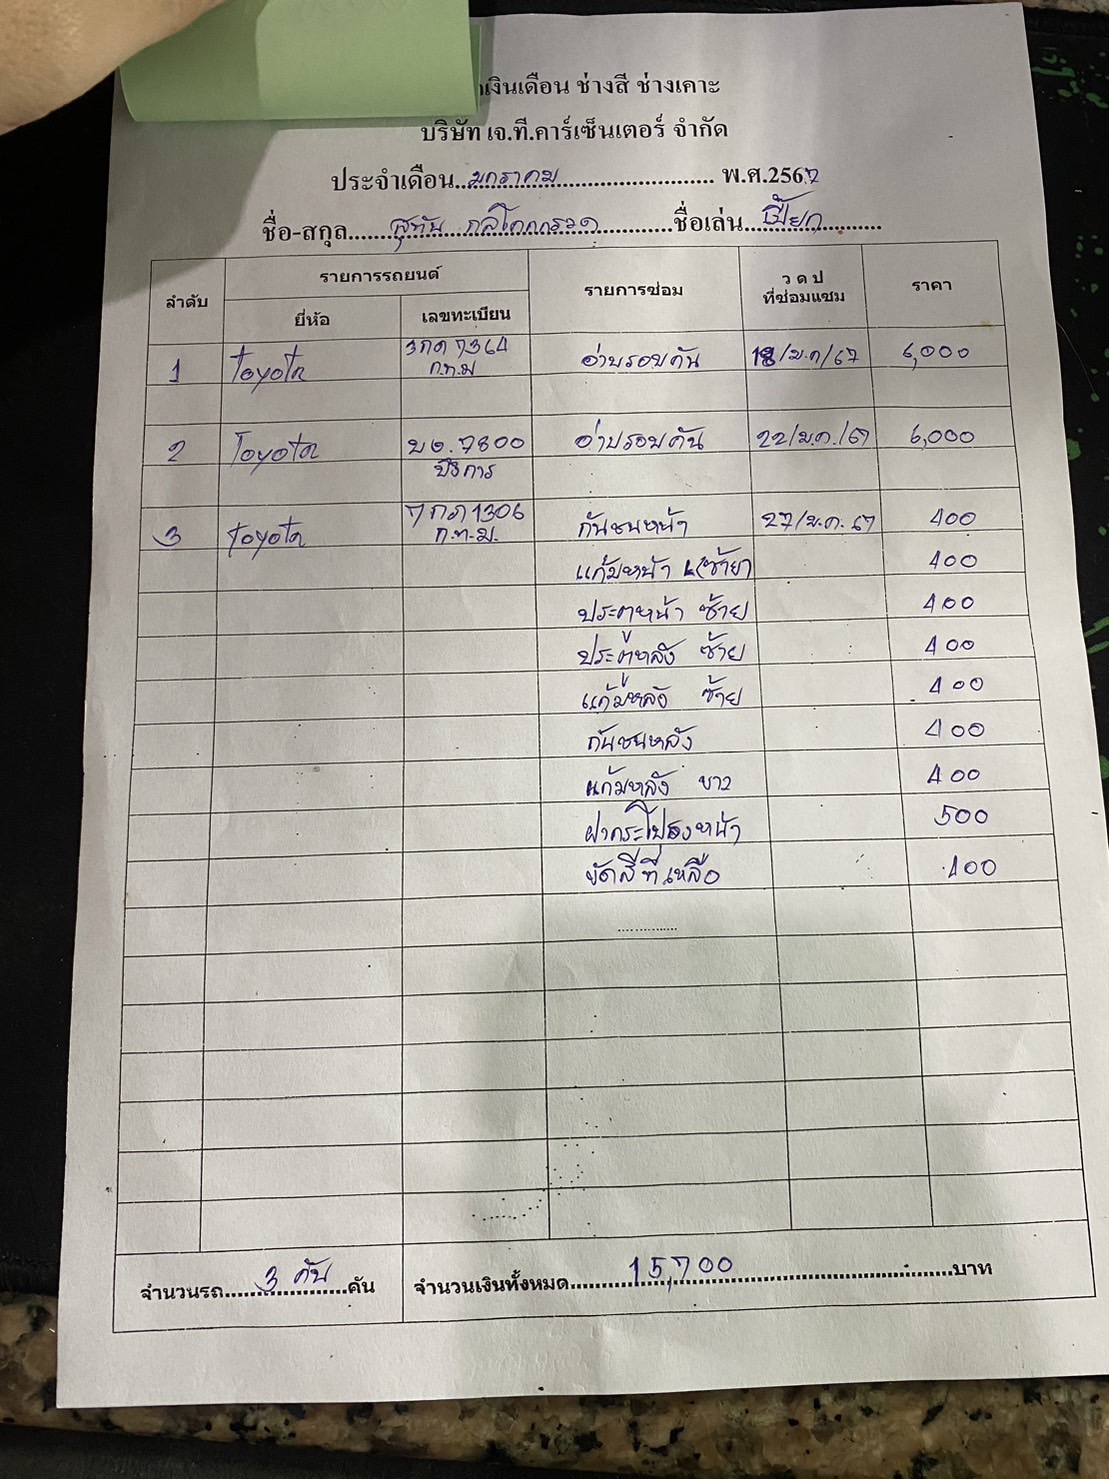 เงินเดือน ช่างสี ช่างเคาะ
บริษัท เจ.ที.คาร์เซ็นเตอร์ จำกัด
ประจำเดือน..มกราคม.......................... พ.ศ.2567
ชื่อ-สกุล......สุทัน.................ชื่อเล่น...เปี๊ยก.........
ลำดับ รายการรถยนต์ รายการซ่อม ว ด ป ราคา
ยี่ห้อ เลขทะเบียน ที่ซ่อมแซม
1 Toyota 3กด 7364 อ่าบรอบคัน 18/ม.ค/67 6,000
ก.ท.ม
2 Toyota บง.7800 อ่าบรอบคัน 22/ม.ค./67 6,000
3 toyota 7กภ1306 กันชนหน้า 27/ม.ค.67 400
ก.ท.ม.
แก้มหน้า ซ้าย 400
ประตูหน้า ซ้าย 400
ประตูหลัง ซ้าย 400
แก้มหลัง ซ้าย 400
กันชนหลัง 400
แก้มหลัง ขวา 400
ฝากระโปรงหน้า 500
ขัดสีที่เหลือ 400
จำนวนรถ......3 คัน......คัน จำนวนเงินทั้งหมด......15,700......บาท